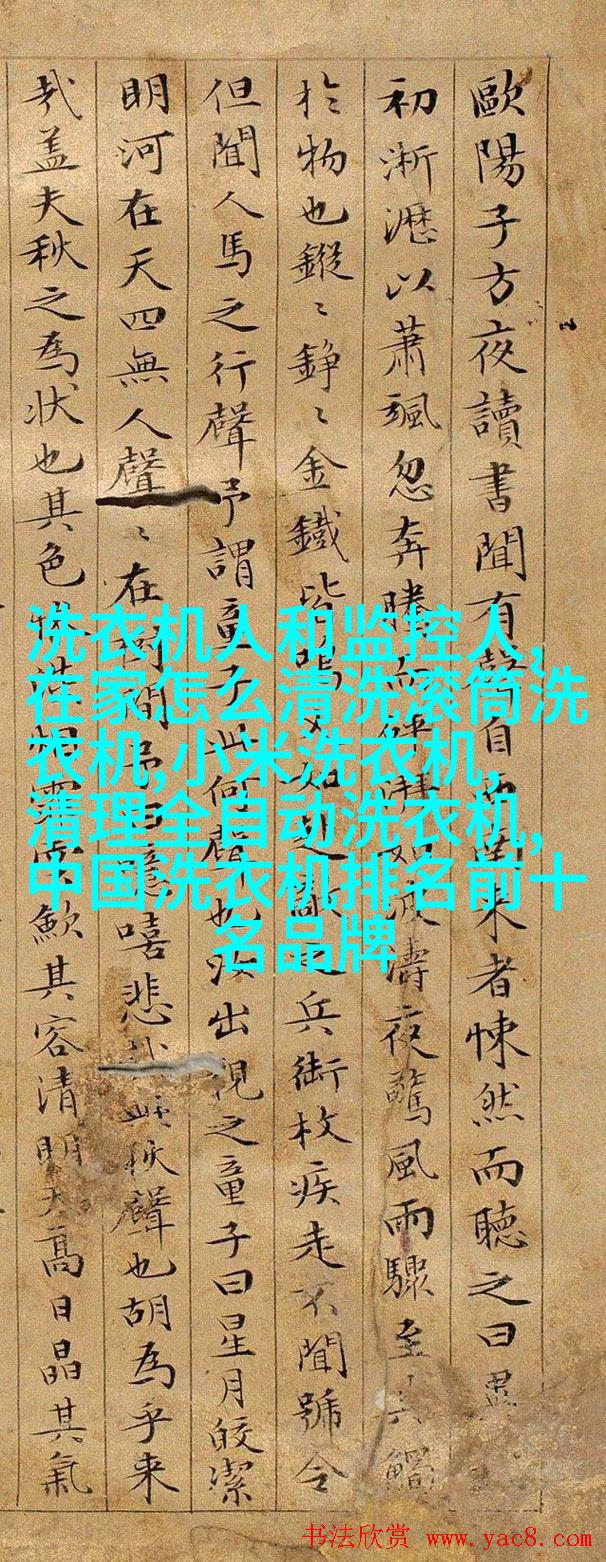 歐陽子方夜讀書聞有聲自西南来者悚然而聽之曰異
初淅瀝以蕭颯忽奔騰而砰湃如波濤夜驚風雨驟至其觸
於物也鏦〻錚〻金鐵皆鳴又如赴敵之兵銜枚疾走不聞號令
但聞人馬之行聲予謂童子此何聲也汝出視之童子曰星月皎潔
明河在天四無人聲〻在樹間予曰噫嘻悲哉此秋聲也胡為乎来
哉盖夫秋之為状也其色慘淡烟霏雲斂其容清明天高日晶其氣
洗衣机人和监控人,
在家怎么清洗滚筒洗
衣机,小米洗衣机,
清理全自动洗衣机,
中国洗衣机排名前十
名品牌
书法欣赏 www.yac8.com